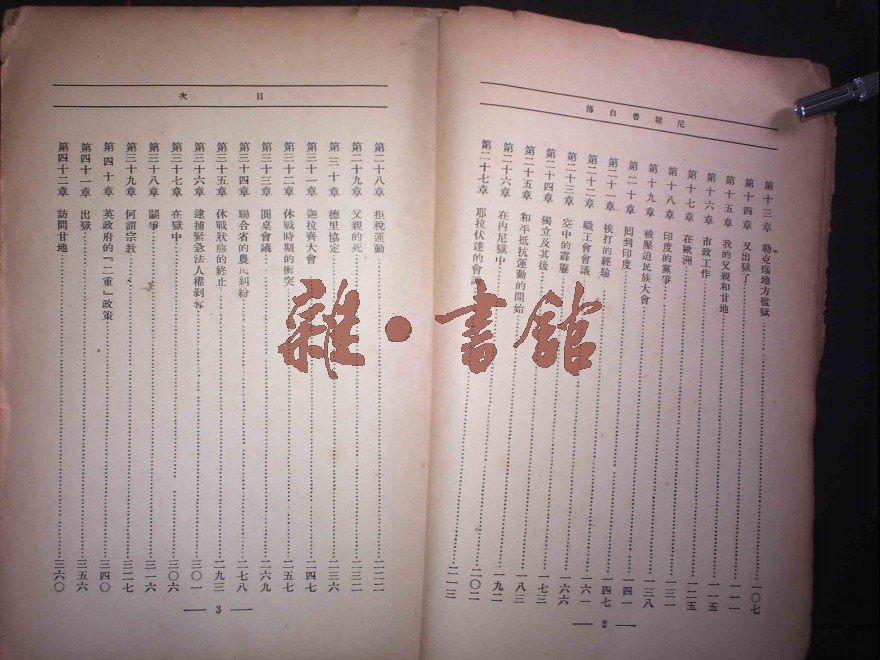 尼赫魯自傳
第十三章 勒克瑙地方監獄 一〇七
第十四章 又出獄了 一一一
第十五章 我的父親和甘地 一一五
第十六章 市政工作 一二五
第十七章 在歐洲 一三一
第十八章 印度的黨爭 一三八
第十九章 被壓迫民族大會 一四一
第二十章 囘到印度 一四七
第二十一章 挨打的經驗 一六一
第二十二章 職工會會議 一六六
第二十三章 空中的霹靂 一七三
第二十四章 獨立及其後 一八三
第二十五章 和平抵抗運動的開始 一九二
第二十六章 在內尼獄中 二〇二
第二十七章 耶拉伏達的會議 二一三
— 2 —
目次
第二十八章 拒稅運動 二二二
第二十九章 父親的死 二三二
第三十章 德里協定 二三六
第三十一章 迦拉齊大會 二四七
第三十二章 休戰時期的衝突 二五七
第三十三章 圓桌會議 二六九
第三十四章 聯合省的農民糾紛 二七八
第三十五章 休戰狀態的終止 二九三
第三十六章 逮捕緊急法人權剝奪 三〇一
第三十七章 在獄中 三〇六
第三十八章 鬭爭 三一六
第三十九章 何謂宗教 三二七
第四十章 英政府的『二重』政策 三四〇
第四十一章 出獄 三五六
第四十二章 訪問甘地 三六〇
— 3 —
雜·書館